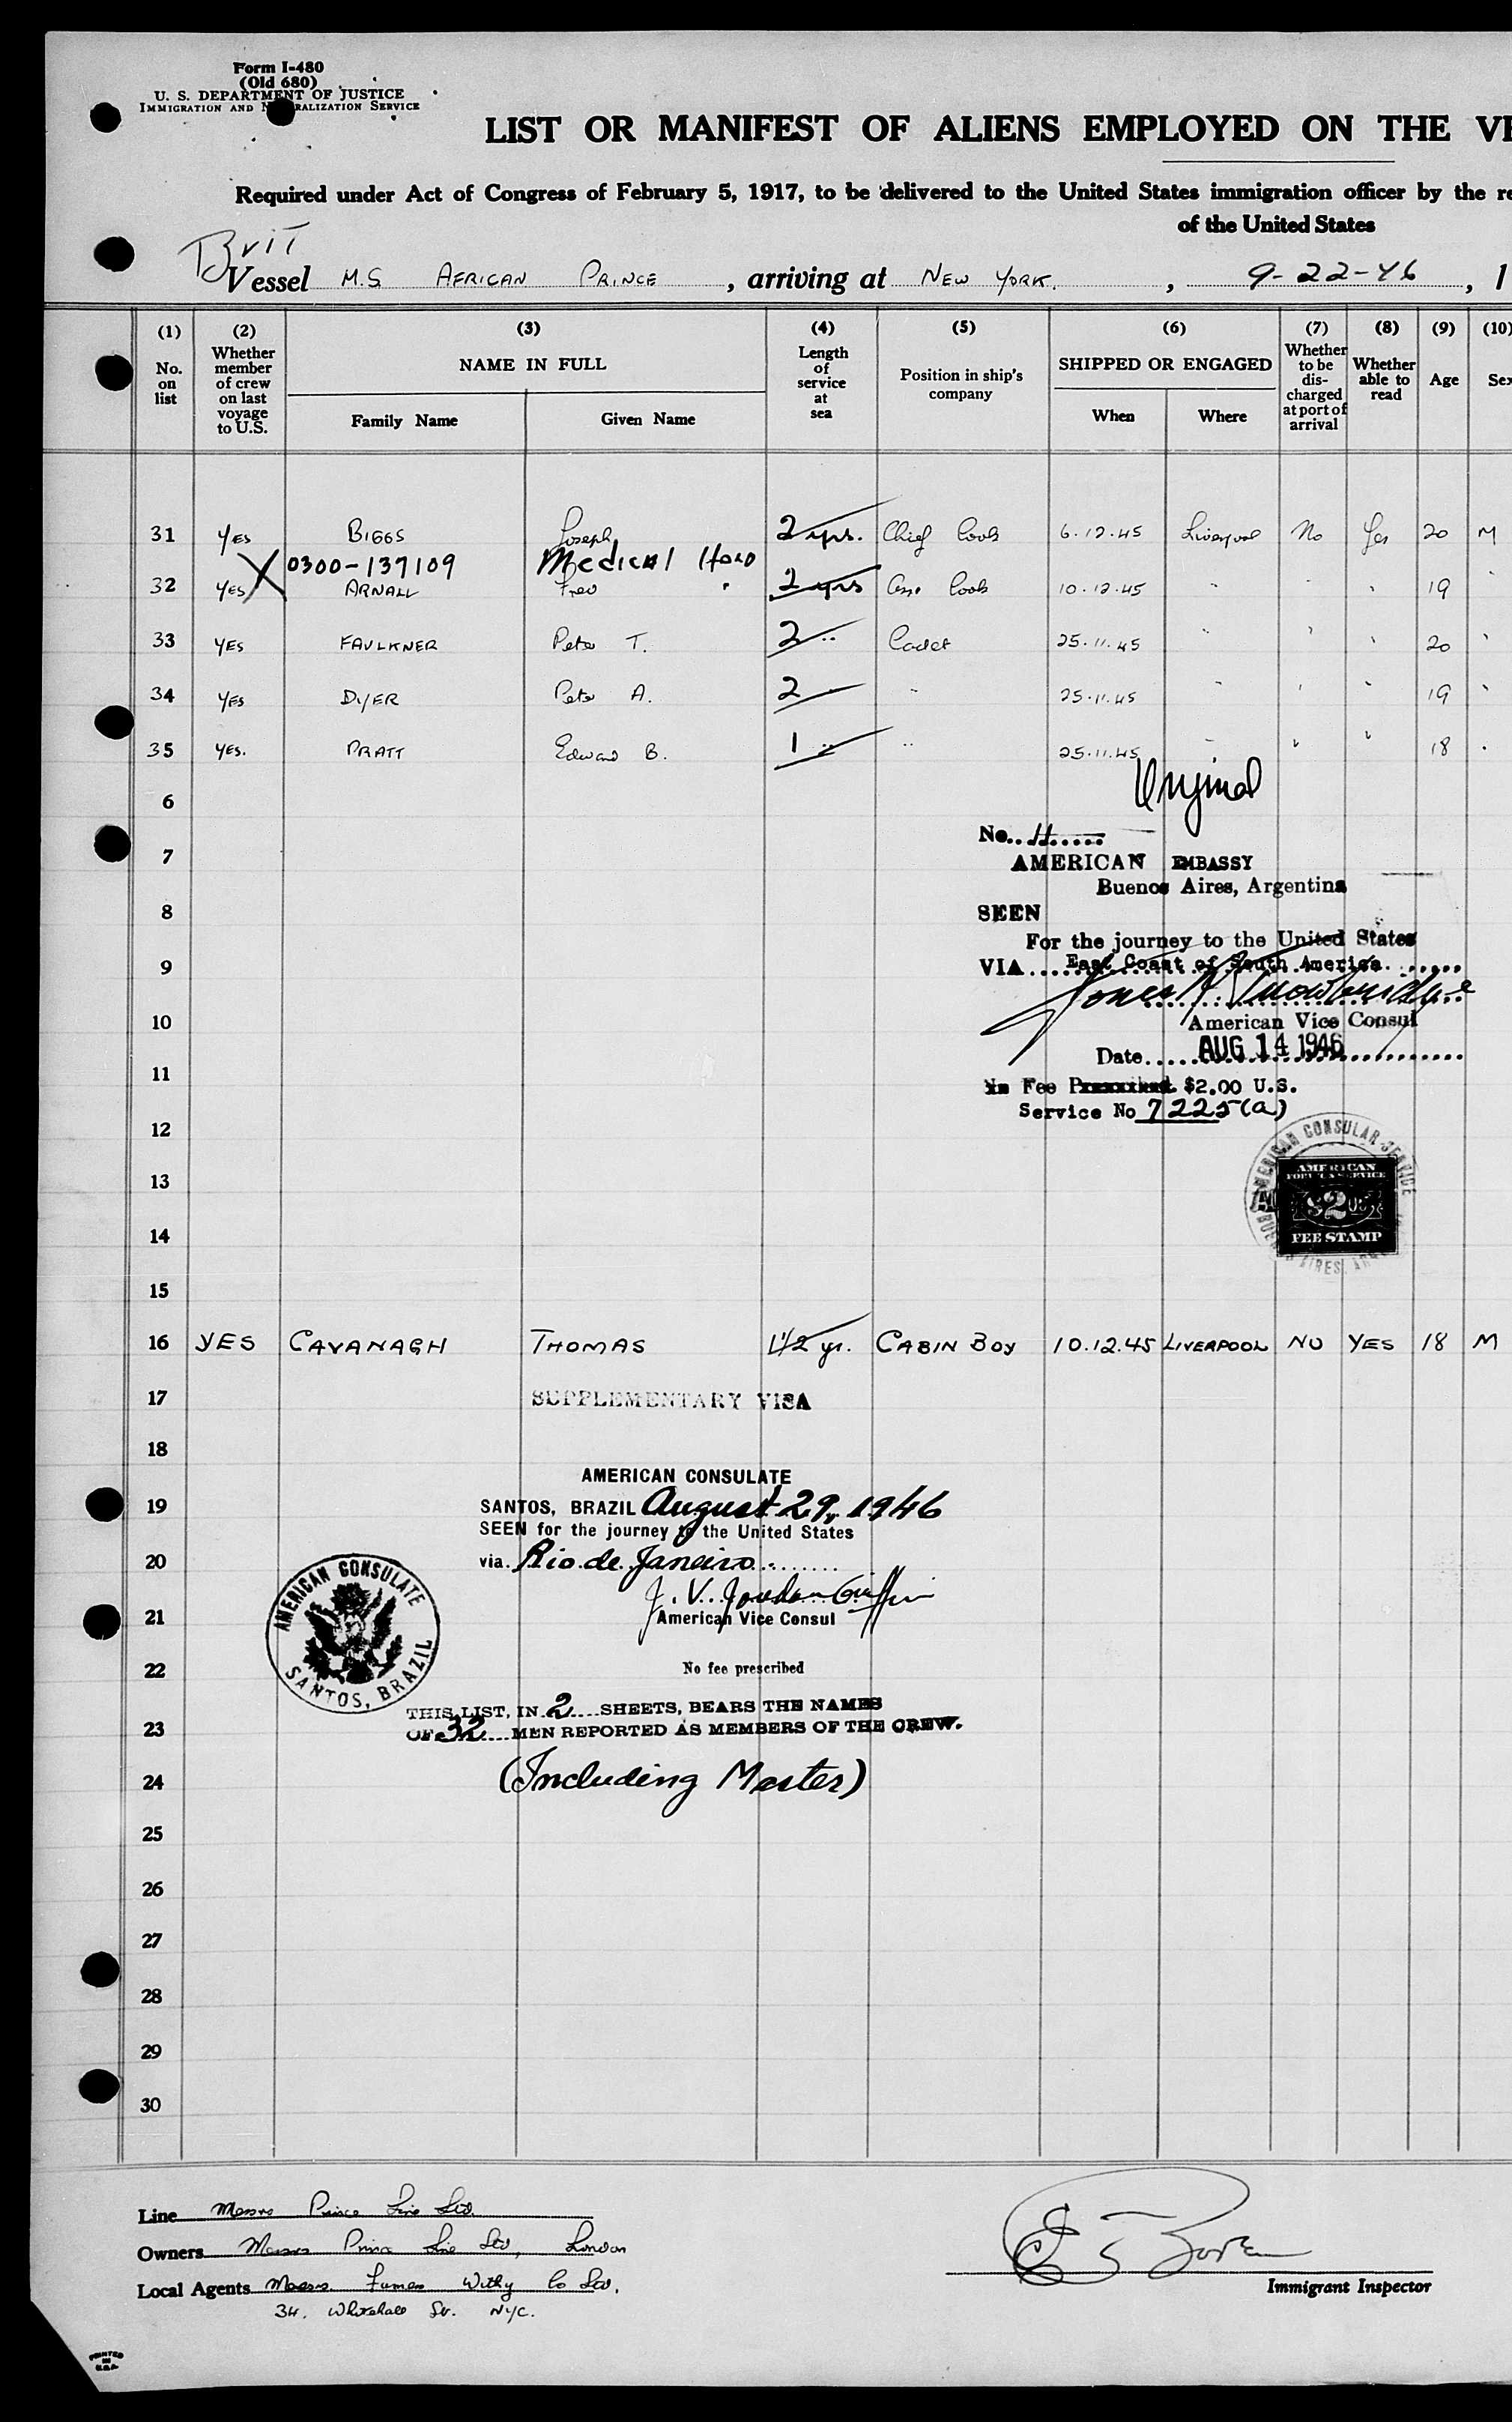 Form I-480
(Old 680)
U. S. DEPARTMENT OF JUSTICE
IMMIGRATION AND RALIZATION SERVICE
LIST OR MANIFEST OF ALIENS EMPLOYED ON THE VE
Required under Act of Congress of February 5, 1917, to be delivered to the United States immigration officer by the re
of the United States
Brit
Vessel M.S AFRICAN PRINCE, arriving at NEW YORK., 9-22-46, 1
(1) (2) (3) (4) (5) (6) (7) (8) (9) (10)
No. on list Whether member of crew on last voyage to U.S. NAME IN FULL Length of service at sea Position in ship's company SHIPPED OR ENGAGED Whether to be discharged at port of arrival Whether able to read Age Sex
Family Name Given Name When Where
31 YES BIGGS Joseph 2 yrs. Chief Cook 6.12.45 Liverpool No Yes 20 M
0300-137109 Medical Hold
32 YES ARNALL Fred 2 yrs Asst Cook 10.12.45 " " " 19 "
33 YES FAULKNER Peter T. 2 " Cadet 25.11.45 " " " 20 "
34 YES DYER Peter A. 2 " " 25.11.45 " " " 19 "
35 YES. PRATT Edward B. 1 " " 25.11.45 " " " 18 "
6
Original
No. 11
7
AMERICAN EMBASSY
Buenos Aires, Argentina
8
SEEN
For the journey to the United States
9
VIA East Coast of South America
10
American Vice Consul
Date AUG 14 1946
11
Fee $2.00 U.S.
Service No 7225(a)
12
AMERICAN CONSULAR SERVICE
13
AMERICAN
FOREIGN SERVICE
$2.00
14
FEE STAMP
15
16 YES CAVANAGH THOMAS 1 1/2 yr. CABIN BOY 10.12.45 LIVERPOOL NO YES 18 M
17
SUPPLEMENTARY VISA
18
AMERICAN CONSULATE
19
SANTOS, BRAZIL August 29, 1946
SEEN for the journey to the United States
20
via. Rio de Janeiro
21
American Vice Consul
AMERICAN CONSULATE
SANTOS, BRAZIL
22
No fee prescribed
THIS LIST, IN 2 SHEETS, BEARS THE NAMES
23
OF 32 MEN REPORTED AS MEMBERS OF THE CREW.
24
(Including Master)
25
26
27
28
29
30
Line Messrs Prince Line Ltd.
Owners Messrs Prince Line Ltd, London
Local Agents Messrs. Furness Withy Co Ltd.
34. Whitehall St. NYC.
Immigrant Inspector
PRINTED
IN
U.S.A.